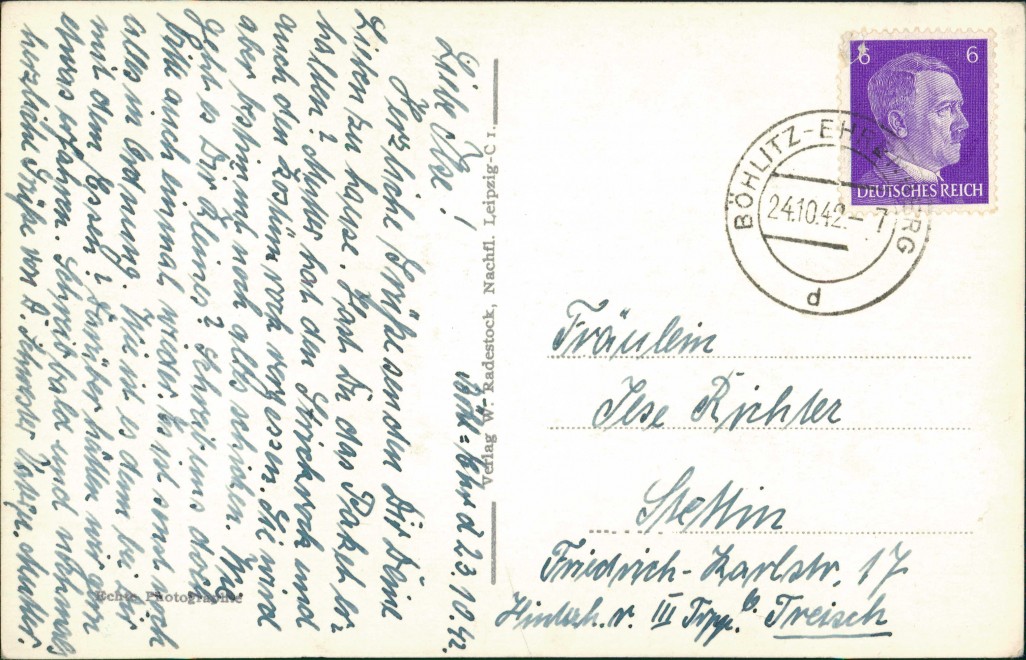 Böhl=Ehrd. 23.10.42.
Liebe Ilse!
Herzliche Grüße senden Dir Deine
Lieben zu hause. Hast Du das Paket er
halten? Mutti hat den Strickrock und
auch den wird
aber bestimmt noch alles schicken. Wie
geht es Dir Kleines? Schreib uns doch
bitte auch einmal wieder. Es ist sonst noch
alles in Ordnung. Wie ist es denn bei Dir
mit dem Essen? Darüber hätten wir gern
etwas erfahren. Schreib bald und nochmals
herzliche Grüße von D. Schwester
Verlag W. Radestock, Nachfl. Leipzig-C 1.
Echte Photographie
6 6
DEUTSCHES REICH
BÖHLITZ-EHRENBERG
24.10.42.-7
d
Fräulein
Ilse Richter
Stettin
Friedrich-Karlstr. 17
Hinterh. v. III Trpp. b. Treisch